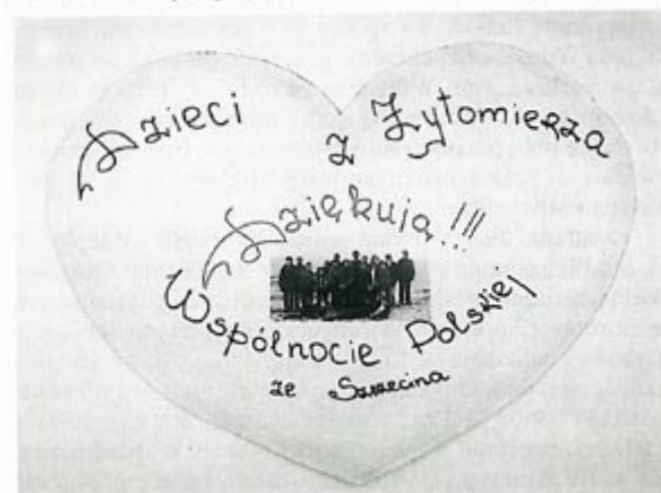 Dzieci z Żytomierza
Dziękują!!!
Wspólnocie Polskiej
ze Szczecina